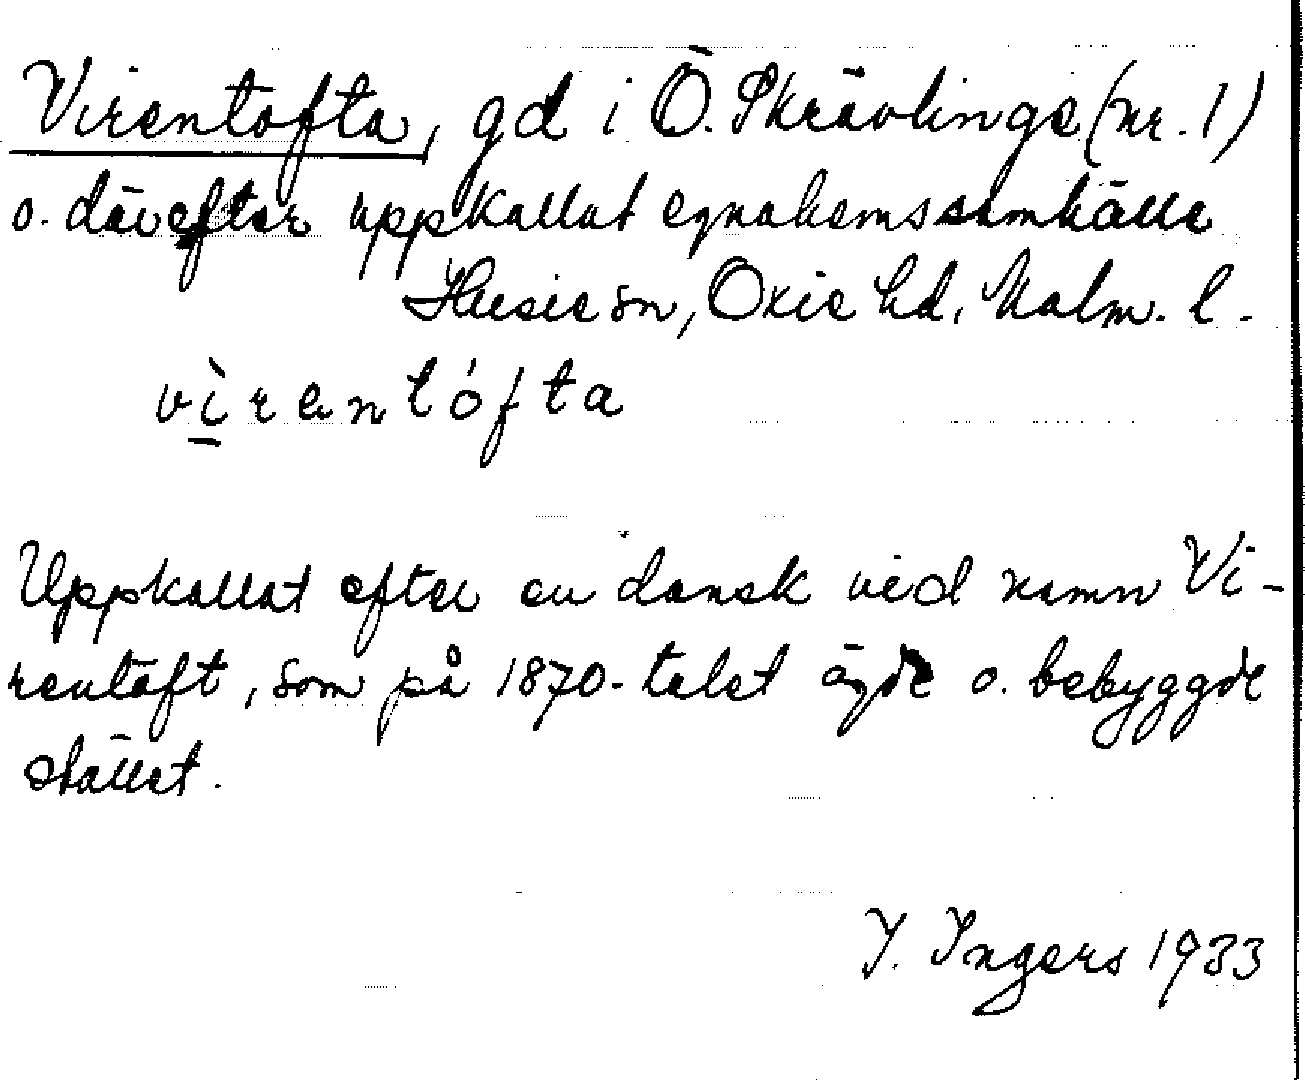 Virentofta, gd i Ö. Skrävlinge (nr. 1)
o. därefter uppkallat egnahemssamhälle
Husie sn, Oxie hd, Malm. l.
vìrentófta
Uppkallat efter en dansk vid namn Vi-
rentoft, som på 1870-talet ägde o. bebyggde
stället.
I. Ingers 1933